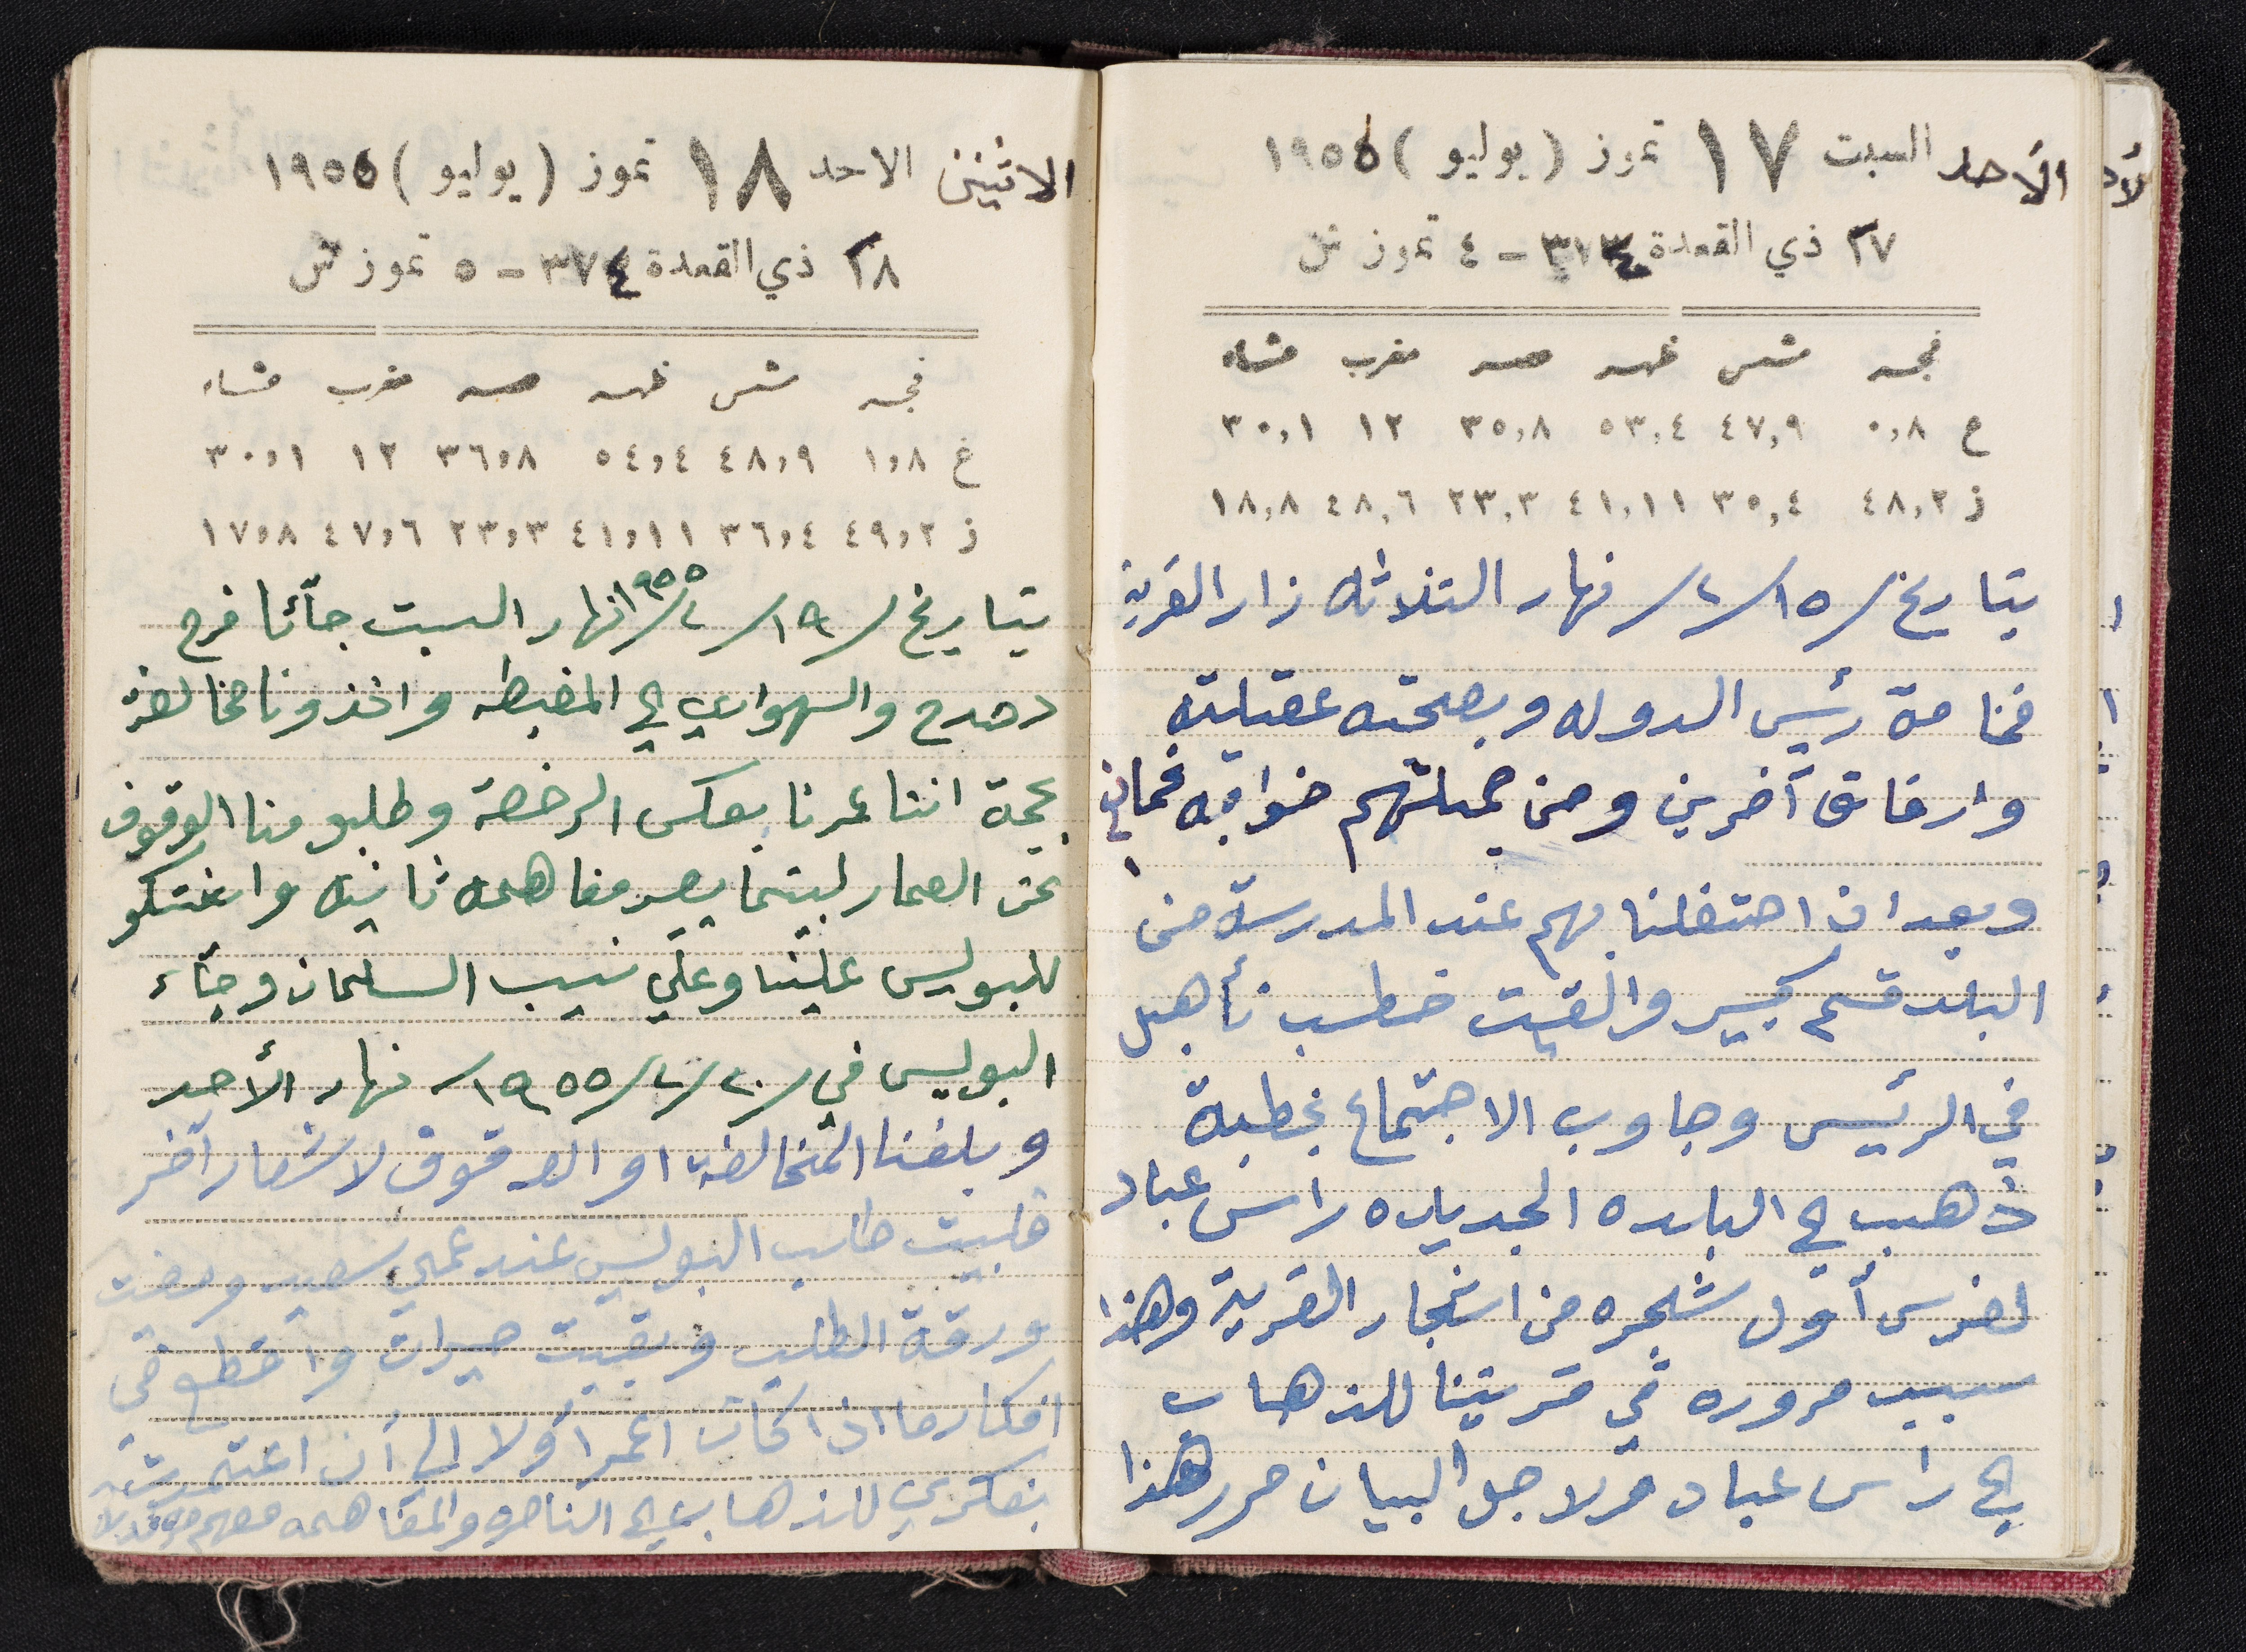 الأحد السبت ١٧ تموز (يوليو) ١٩٥٥
٢٧ ذي القعدة ٣٧٤ - ٤ تموز ش
فجر شمس ظهر عصر مغرب عشاء
ع ٠,٨ ٤٧,٩ ٥٣,٤ ٣٥,٨ ١٢ ٣٠,١
ز ٤٨,٢ ٣٥,٤ ٤١,١١ ٢٣,٣ ٤٨,٦ ١٨,٨
بتاريخ /١٥/٢/ نهار الثلاثاء زار القرية
فخامة رئيس الدوله وبصحته عقيلته
وارفاق آخرين ومن جملتهم خواجه
وبعد ان احتفلنا بهم عند المدرسة من
البلد قسم كبير والقيت خطب تأهيل
في الرئيس وجاوب الاجتماع بخطبة
ذهب الى البلده الجديده راس عباد
لغرس أول شجره من اشجار القرية وهذا
سبب مروره في قريتنا للذهاب
الى راس عباد ولاجل البيان حرر هذا
الاثنين الاحد ١٨ تموز (يوليو) ١٩٥٥
٢٨ ذي القعدة ٣٧٤ - ٥ تموز ش
فجر شمس ظهر عصر مغرب عشاء
غ ١,٨ ٤٨,٩ ٥٤,٤ ٣٦,٨ ١٢ ٣٠,١
ز ٤٩,٢ ٣٦,٤ ٤١,١١ ٢٣,٣ ٤٧,٦ ١٧,٨
بتاريخ /١٩/٢/١٩٥٥ نهار السبت جائنا فرح
دحدح والهواري الى المغبطه واخذونا مخالفة
بحجة اننا عمرنا بعكس الرخصة وطلبو منا الوقوف
عن العمار لبينما يصير مفاهمه ثانيه واشتكو
للبوليس علينا وعلي نسيب السلمان وجاء
البوليس في /٢٠/٢/١٩٥٥ نهار الأحد
وبلغنا المخالفة او الوقوف لاشعار آخر
فلبيت طلب البوليس عند عمي سعيد ومضت
ورقة الطلب وبقيت حيران واقطع في
افكار ما اذا كان اعمر أولا الى أن اعتمدت
بفكري للذهاب الى الناصره والمفاهمه معهم